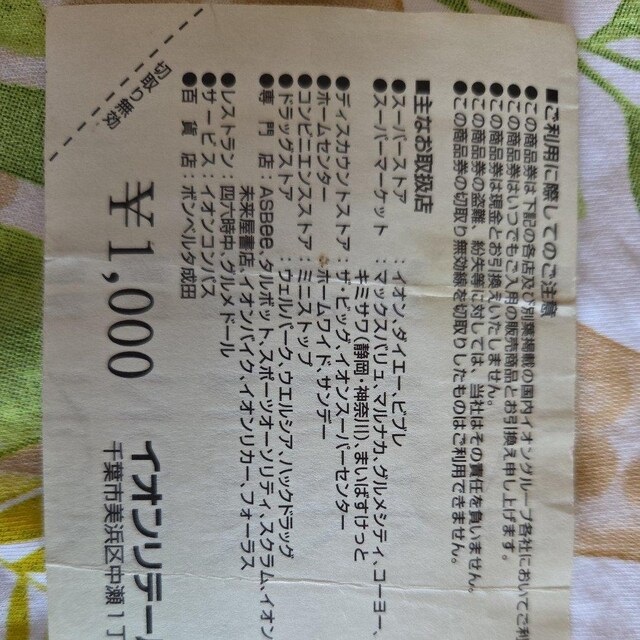 ■ご利用に際してのご注意
●この商品券は下記の各店及び別葉掲載の国内イオングループ各社においてご利
●この商品券はいつでもご入用の販売商品とお引換え申し上げます。
●この商品券は現金とお引換えいたしません。
●この商品券の盗難、紛失等に対しては、当社はその責任を負いません。
●この商品券の切取り無効線を切取りしたものはご利用できません。
■主なお取扱店
●スーパーストア：イオン、ダイエー、ピブレ
●スーパーマーケット：マックスバリュ、マルナカ、グルメシティ、コーヨー、
キミサワ(静岡・神奈川)、まいばすけっと
●ディスカウントストア：ザ・ビッグ、イオンスーパーセンター
●ホームセンター：ホームワイド、サンデー
●コンビニエンスストア：ミニストップ
●ドラッグストア：ウェルパーク、ウエルシア、ハックドラッグ
●専門店：ASBee、グルボット、スポーツオーソリティ、スクラム、イオン
未来屋書店、イオンバイク、イオンリカー、フォーラス
●レストラン：四六時中、グルメドール
●サービス：イオンコンパス
●百貨店：ボンベルタ成田
切取り無効
￥1,000
イオンリテー
千葉市美浜区中瀬1丁